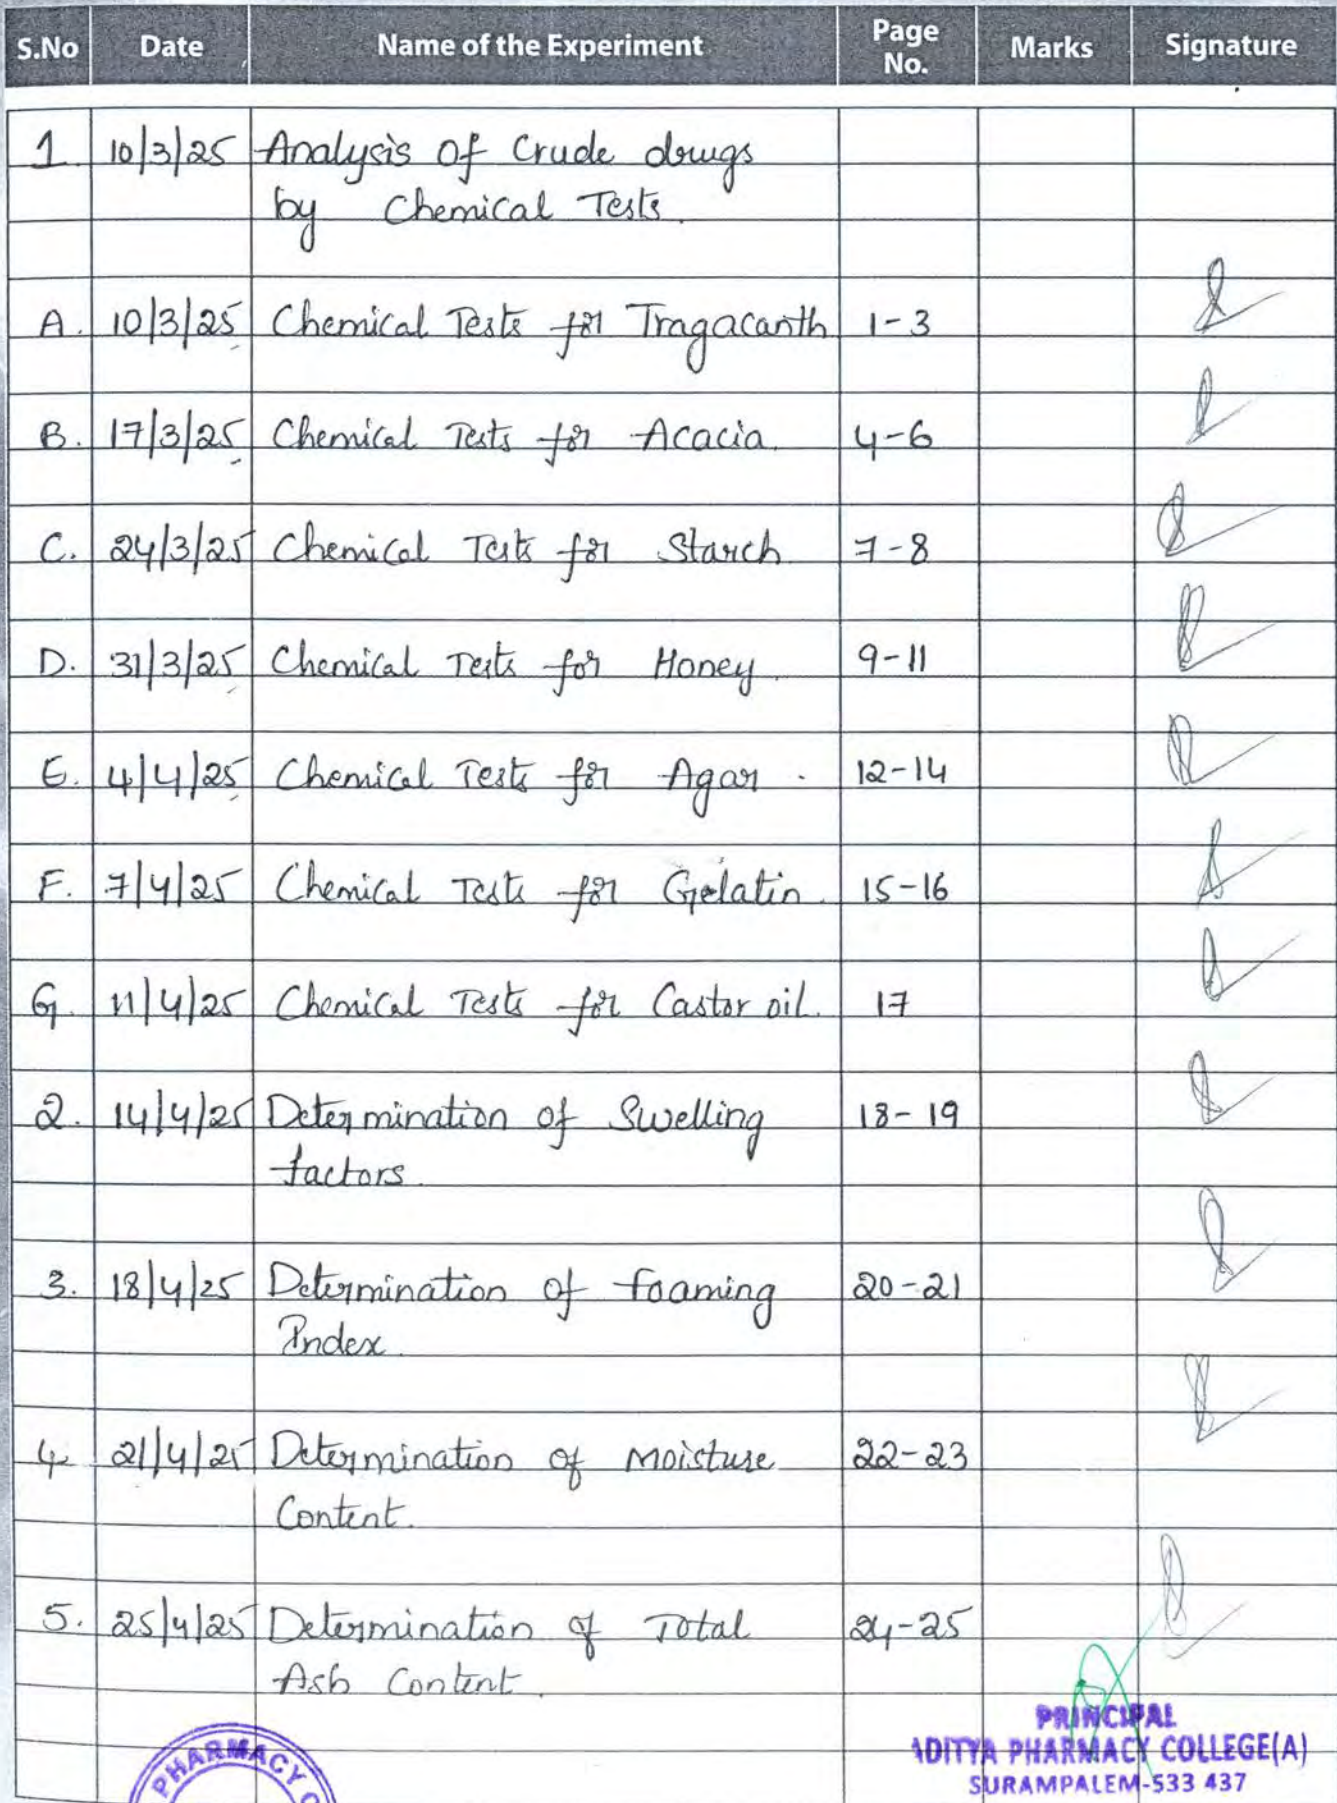 S.No Date Name of the Experiment Page No. Marks Signature
1 10/3/25 Analysis of Crude drugs
by Chemical Tests.
A. 10/3/25 Chemical Tests for Tragacanth 1-3
B. 17/3/25 Chemical Tests for Acacia. 4-6
C. 24/3/25 Chemical Tests for Starch 7-8
D. 31/3/25 Chemical Tests for Honey. 9-11
E. 4/4/25 Chemical Tests for Agar. 12-14
F. 7/4/25 Chemical Tests for Gelatin. 15-16
G. 11/4/25 Chemical Tests for Castor oil. 17
2. 14/4/25 Determination of Swelling 18-19
factors.
3. 18/4/25 Determination of foaming 20-21
Index.
4. 21/4/25 Determination of Moisture 22-23
Content.
5. 25/4/25 Determination of Total 24-25
Ash Content.
PRINCIPAL
ADITYA PHARMACY COLLEGE(A)
SURAMPALEM-533 437
PHARMACY